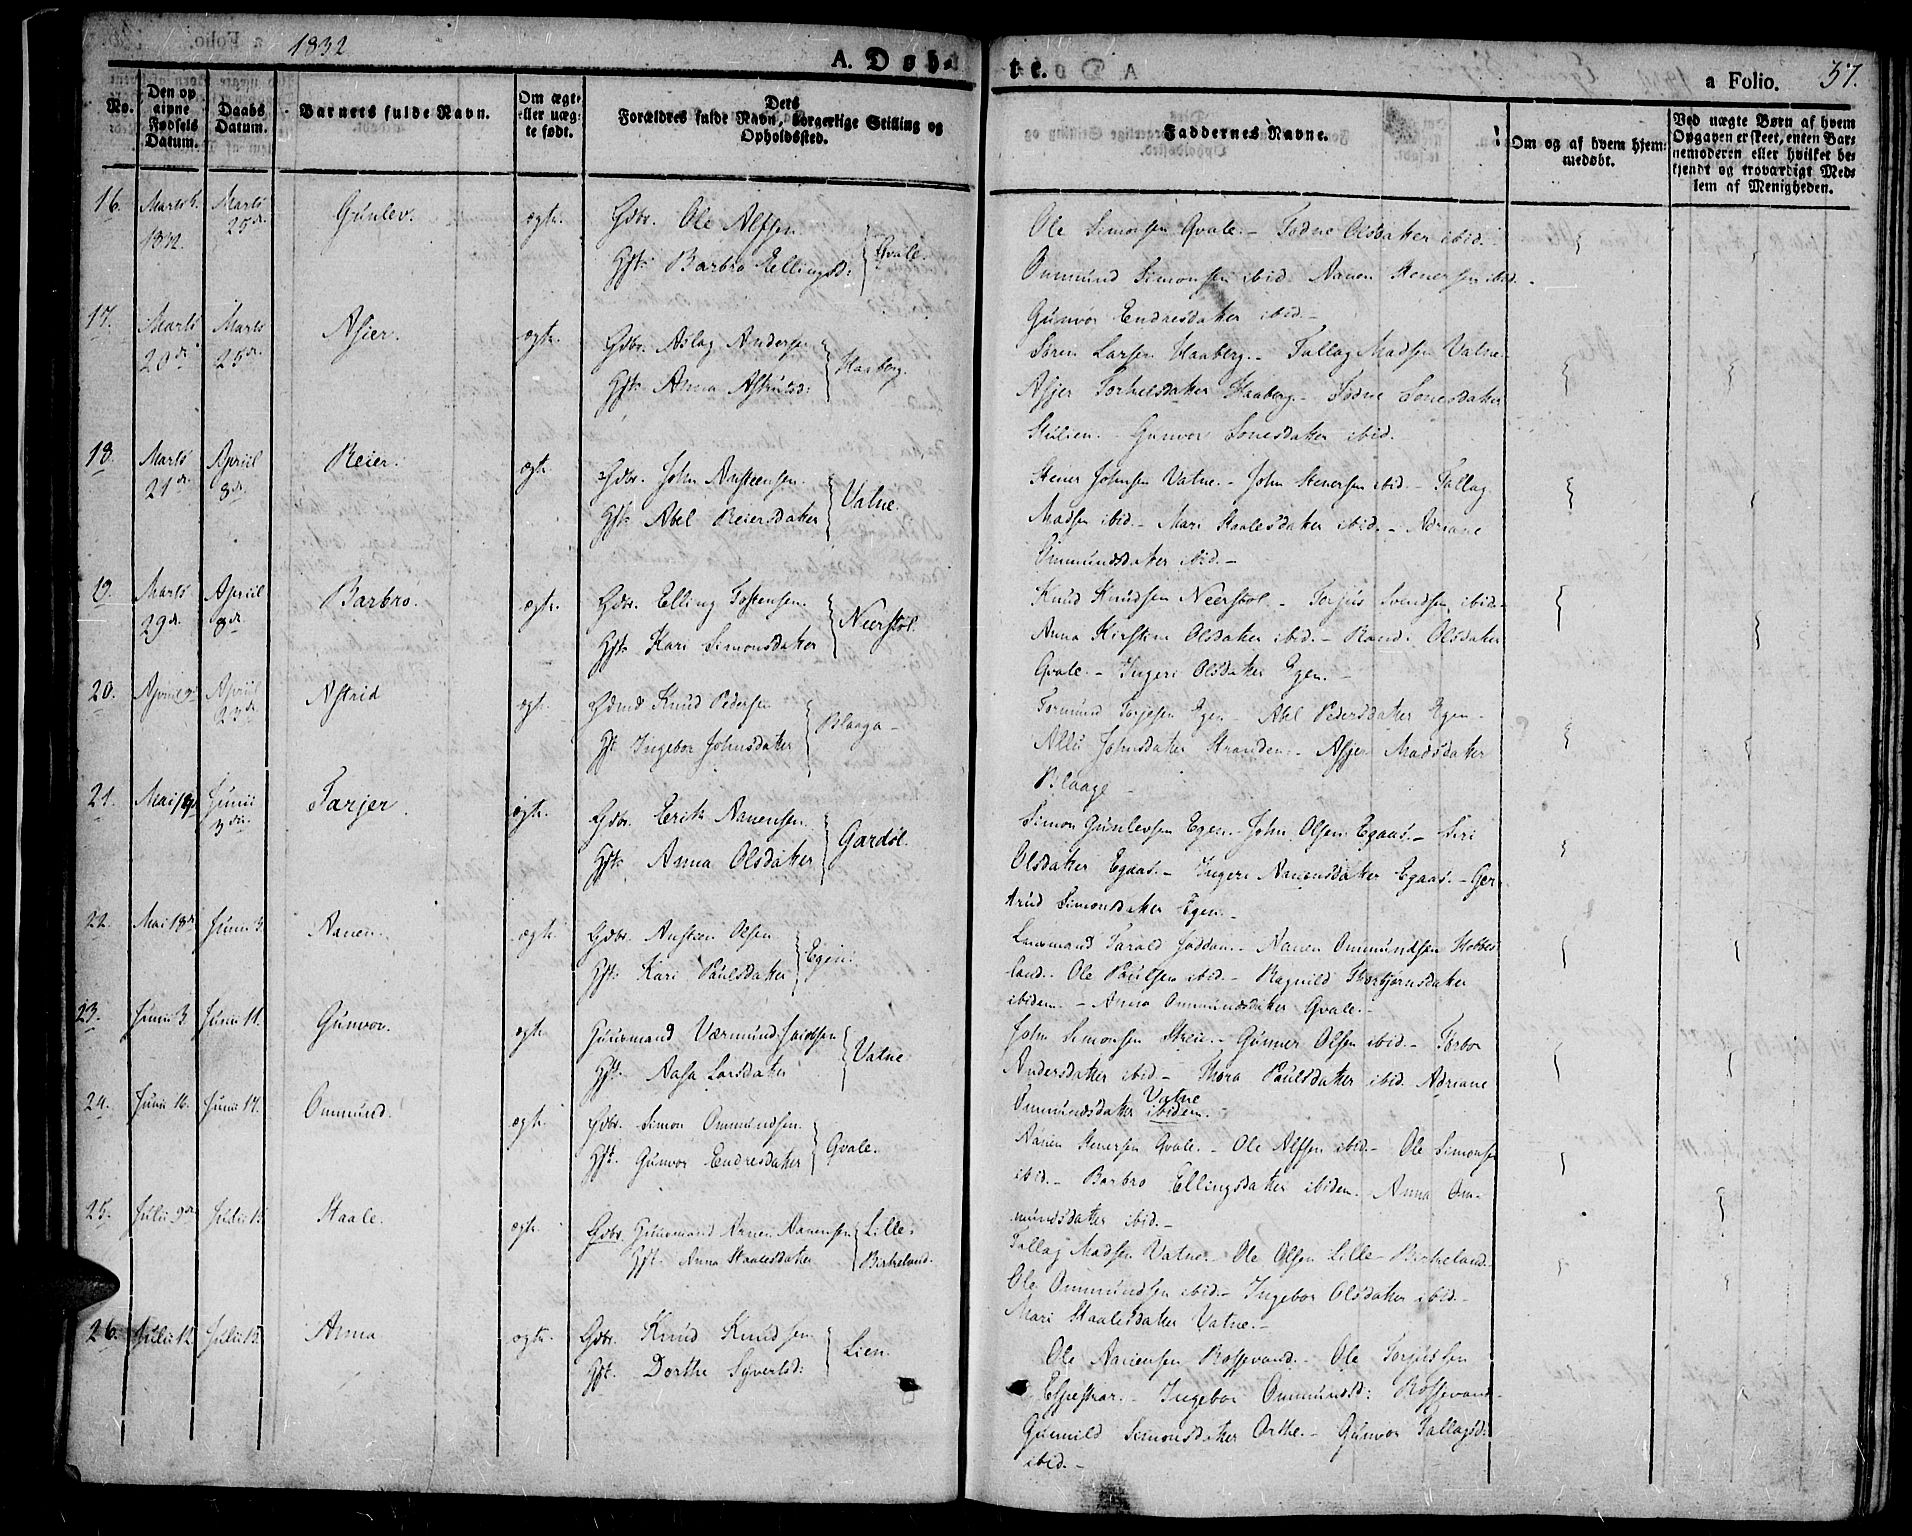 1832
A. Døb-
te.
a Folio. 57.
No.
Den op
givne
Fødsels
Datum.
Daabs
Datum.
Barnets fulde Navn.
Om ægte
eller uæg-
te født.
Dets
Forældres fulde Navn, borgerlige Stilling og
Opholdssted.
Faddernes Navne.
Om og af hvem hjem-
medøbt.
Ved uægte Børn af hvem
Opgaven er skeet, enten Bar-
nemoderen eller hvilket be-
kjendt og troværdigt Med-
lem af Menigheden.
16. Marts Marts Gunlev. ægte. Gdbr. Ole Alfsen
1832. 25de Hst: Barbro Ellingsd: Qvale.
Ole Simonsen Qvale. - Todne Olsdatter ibid.
Ommund Simonsen ibid. Aanen Stenersen ibid.
Gunvor Endresdatter ibid. -
17. Marts Marts Asjer. ægte. Gdbr. Aslag Andersen
20de 25de Hst: Anna Haaberg.
Søren Larsen Haaberg. - Tallag Madsen Vatne.
Asjer Torkelsdatter Haaberg. - Todne Tonesdatter
Gunvor Tonesdatter ibid.
18. Marts Apriil Reier. ægte Gdbr. John Austeensen.
21de 8de Hst: Abel Reiersdatter Vatne.
Stener Johnsen Vatne. - John Stenersen ibid. - Tallag
Madsen ibid. - Mari Staalesdatter ibid. - Adriane
Ommundsdatter ibid. -
19. Marts Apriil Barbro. ægte. Gdbr. Elling Tostensen.
29de 8de Hst: Kari Simonsdatter Neerstøl.
Knud Knudsen Neerstøl. - Terjus Svendsen ibid. -
Anna Kirstine Olsdatter ibid. - Randi Olsdatter
Qvale. - Ingeri Olsdatter Egen. -
20. Apriil Apriil Astrid ægte. Knud Pedersen
23de Hst Ingebor Johnsdatter Blaage -
Tormund Torjesen Egen - Abel Pedersdatter Egen -
Johnsdatter Stranden. - Asjer Madsdatter
Blaage -
21. Mai Junii Tarjer ægte. Gdbr. Erik Aanensen.
3die Hst: Anna Olsdatter Gardøl.
Simon Gunlevsen Egen. - John Olsen Egaas. - Siri
Olsdatter Egaas. - Ingeri Aanensdatter Egaas. - Ger-
trud Simonsdatter Egen. -
22. Mai 18de Junii 3 Aanen. ægte. Gdbr. Austeen Olsen
Hst: Kari Paulsdatter Egen.
Tarald - Aanen Ommundsen
land. - Ole Paulsen ibid. - Ragnild Thorbjørnsdatter
ibidem. - Anna Ommundsdatter Qvale. -
23. Junii 3. Junii 11. Gunvor. ægte. Huusmand Værmund
Hst. Aasa Larsdatter Vatne
John Simonsen - Gunner Olsen ibid. - Torbor
Andersdatter ibid - Thora Paulsdatter ibid. Adriane
Ommundsdatter ibidem. Vatne
24. Junii 16. Junii 17. Ommund. ægte. Gdbr. Simon Ommundsen.
Hst. Gunvor Endresdatter Qvale.
Aanen Stenersen Qvale. - Ole Alfsen ibid. - Ole Simonsen
ibid. - Barbro Ellingsdatter ibidem. Anna Om-
mundsdatter ibid. -
25. Julii 9de Julii 15. Staale. ægte. Gdbr. Huusmand Aanen Aanensen Lille-
Hst. Anna Staalesdatter Birkeland.
Tallag Madsen Vatne. - Ole Olsen Lille-Birkeland.
Ole Ommundsen ibid. - Ingebor Olsdatter ibid. -
Mari Staalesdatter Vatne. -
26. Julii 12. Julii 15. Anna ægte. Gdbr. Knud Knudsen
Hst. Dorthe Syvertsd: Lien.
Ole Aanensen Rossevand. - Ole Torjussen
Espestøar. - Ingebor Ommundsd: Rossevand. -
Gunnild Simonsdatter - Gunvor Tallagsd:
ibid. -